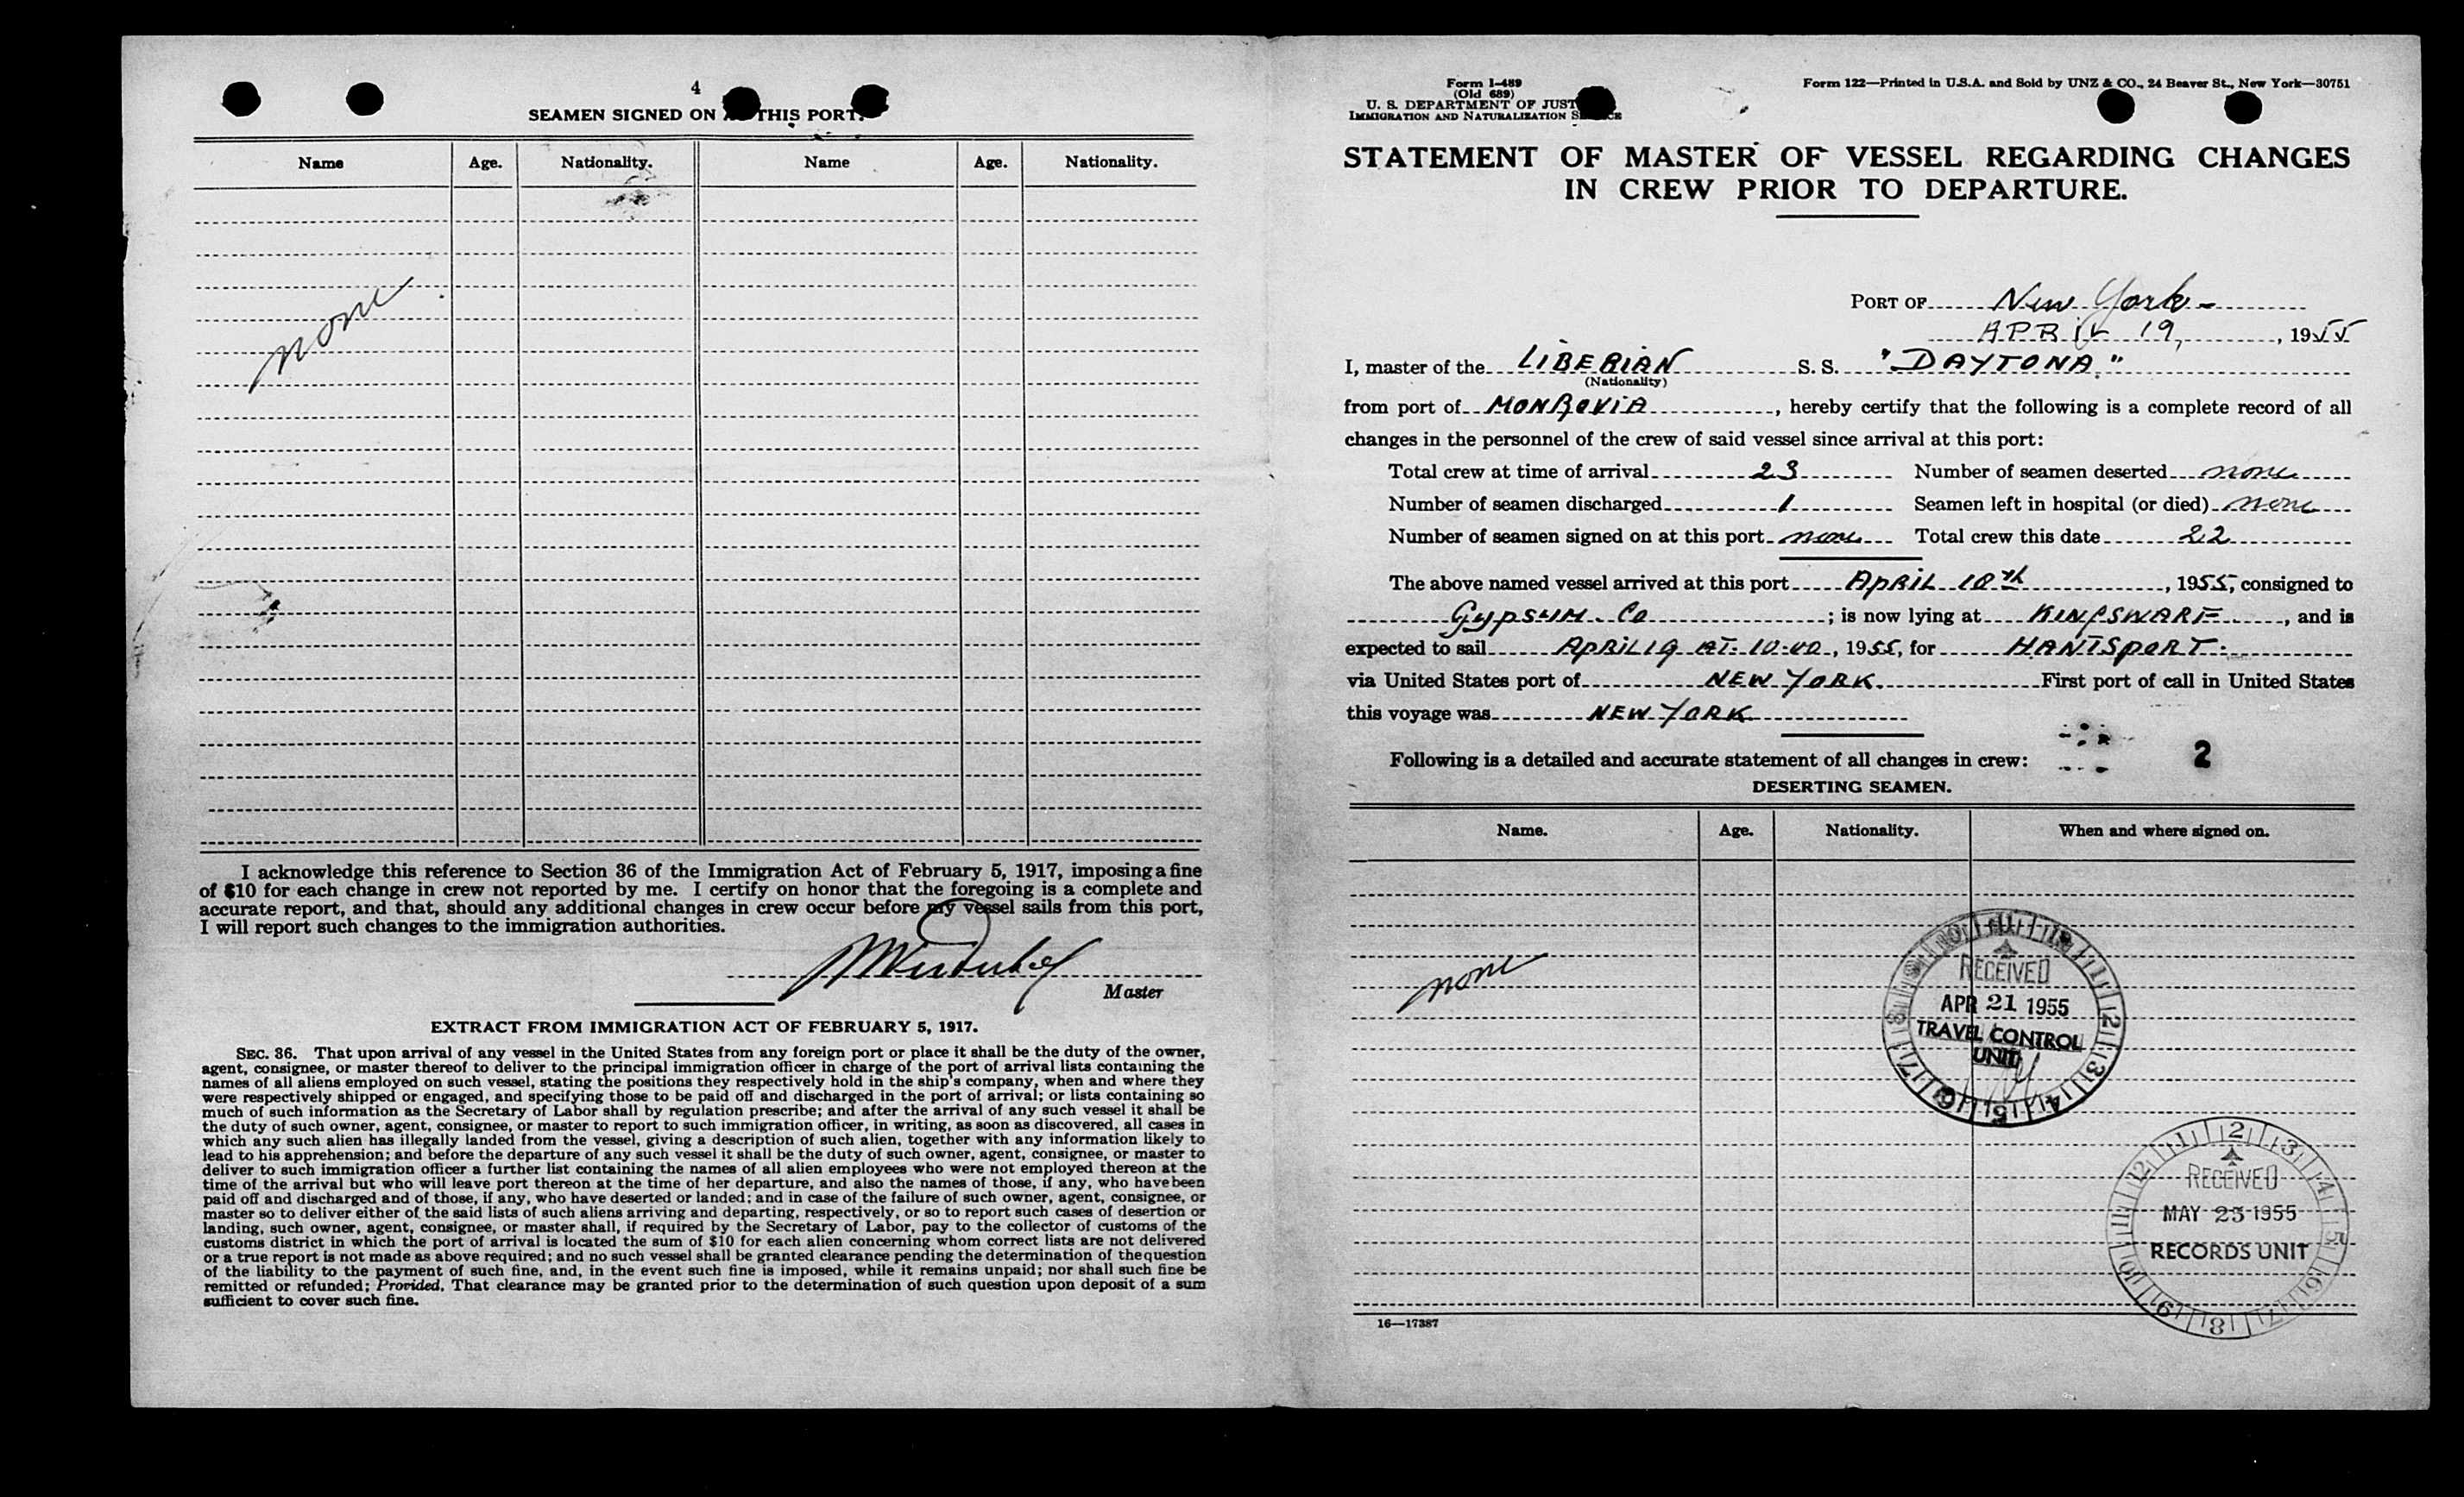 4
SEAMEN SIGNED ON THIS PORT.
Name Age. Nationality. Name Age. Nationality.
none
I acknowledge this reference to Section 36 of the Immigration Act of February 5, 1917, imposing a fine
of $10 for each change in crew not reported by me. I certify on honor that the foregoing is a complete and
accurate report, and that, should any additional changes in crew occur before my vessel sails from this port,
I will report such changes to the immigration authorities.
Master
EXTRACT FROM IMMIGRATION ACT OF FEBRUARY 5, 1917.
SEC. 36. That upon arrival of any vessel in the United States from any foreign port or place it shall be the duty of the owner,
agent, consignee, or master thereof to deliver to the principal immigration officer in charge of the port of arrival lists containing the
names of all aliens employed on such vessel, stating the positions they respectively hold in the ship's company, when and where they
were respectively shipped or engaged, and specifying those to be paid off and discharged in the port of arrival; or lists containing so
much of such information as the Secretary of Labor shall by regulation prescribe; and after the arrival of any such vessel it shall be
the duty of such owner, agent, consignee, or master to report to such immigration officer, in writing, as soon as discovered, all cases in
which any such alien has illegally landed from the vessel, giving a description of such alien, together with any information likely to
lead to his apprehension; and before the departure of any such vessel it shall be the duty of such owner, agent, consignee, or master to
deliver to such immigration officer a further list containing the names of all alien employees who were not employed thereon at the
time of the arrival but who will leave port thereon at the time of her departure, and also the names of those, if any, who have been
paid off and discharged and of those, if any, who have deserted or landed; and in case of the failure of such owner, agent, consignee, or
master so to deliver either of the said lists of such aliens arriving and departing, respectively, or so to report such cases of desertion or
landing, such owner, agent, consignee, or master shall, if required by the Secretary of Labor, pay to the collector of customs of the
customs district in which the port of arrival is located the sum of $10 for each alien concerning whom correct lists are not delivered
or a true report is not made as above required; and no such vessel shall be granted clearance pending the determination of the question
of the liability to the payment of such fine, and, in the event such fine is imposed, while it remains unpaid; nor shall such fine be
remitted or refunded; Provided, That clearance may be granted prior to the determination of such question upon deposit of a sum
sufficient to cover such fine.
Form I-489
(Old 689)
U. S. DEPARTMENT OF JUST
IMMIGRATION AND NATURALIZATION S CE
Form 122—Printed in U.S.A. and Sold by UNZ & CO., 24 Beaver St., New York—30751
STATEMENT OF MASTER OF VESSEL REGARDING CHANGES
IN CREW PRIOR TO DEPARTURE.
PORT OF New York -
APRIL 19, , 1955
I, master of the LIBERIAN S. S. "DAYTONA"
(Nationality)
from port of MONROVIA, hereby certify that the following is a complete record of all
changes in the personnel of the crew of said vessel since arrival at this port:
Total crew at time of arrival 23 Number of seamen deserted none
Number of seamen discharged 1 Seamen left in hospital (or died) none
Number of seamen signed on at this port none Total crew this date 22
The above named vessel arrived at this port APRIL 10th, 1955, consigned to
Gypsum. Co; is now lying at KINGSWARF, and is
expected to sail APRIL 19 AT. 10:00, 1955, for HANTSPORT.
via United States port of NEW YORK. First port of call in United States
this voyage was NEW YORK
Following is a detailed and accurate statement of all changes in crew: 2
DESERTING SEAMEN.
Name. Age. Nationality. When and where signed on.
none
RECEIVED
APR 21 1955
TRAVEL CONTROL
UNIT
RECEIVED
MAY 25 1955
RECORDS UNIT
16—17387